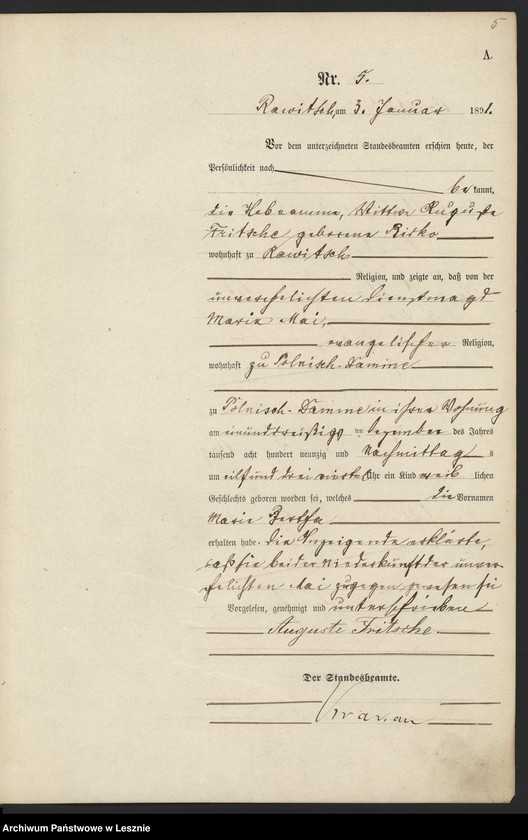 5
A.
Nr. 5.
Rawitsch, am 3. Januar 1891.
Vor dem unterzeichneten Standesbeamten erschien heute, der
Persönlichkeit nach
bekannt,
die Hebeamme, Wittwe Auguste
Fritsche geborene Risko
wohnhaft zu Rawitsch
Religion, und zeigte an, daß von der
unverehelichten Dienstmagd
Marie Mai,
evangelischer Religion,
wohnhaft zu Polnisch-Damme
zu Polnisch-Damme in ihrer Wohnung
am einunddreißigsten ten Dezember des Jahres
tausend acht hundert neunzig und Nachmittags
um eilf und drei viertel Uhr ein Kind weiblichen
Geschlechts geboren worden sei, welches die Vornamen
Marie Bertha
erhalten habe. Die Anzeigende erklärte,
daß sie bei der Niederkunft der unver-
ehelichten Mai zugegen gewesen sei
Vorgelesen, genehmigt und unterschrieben
Auguste Fritsche.
Der Standesbeamte.
Archiwum Państwowe w Lesznie